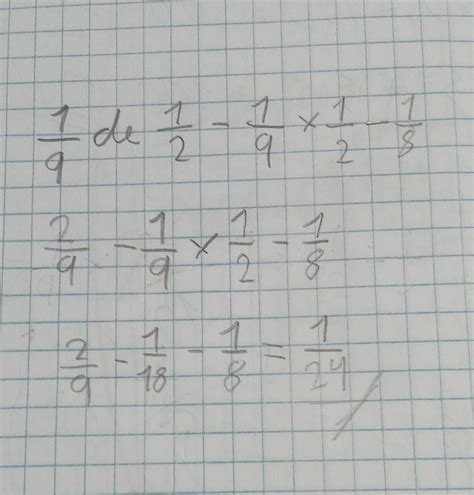 1/9 de 1/2 - 1/9 × 1/2 - 1/8
2/9 - 1/9 × 1/2 - 1/8
2/9 - 1/18 - 1/8 = 1/24